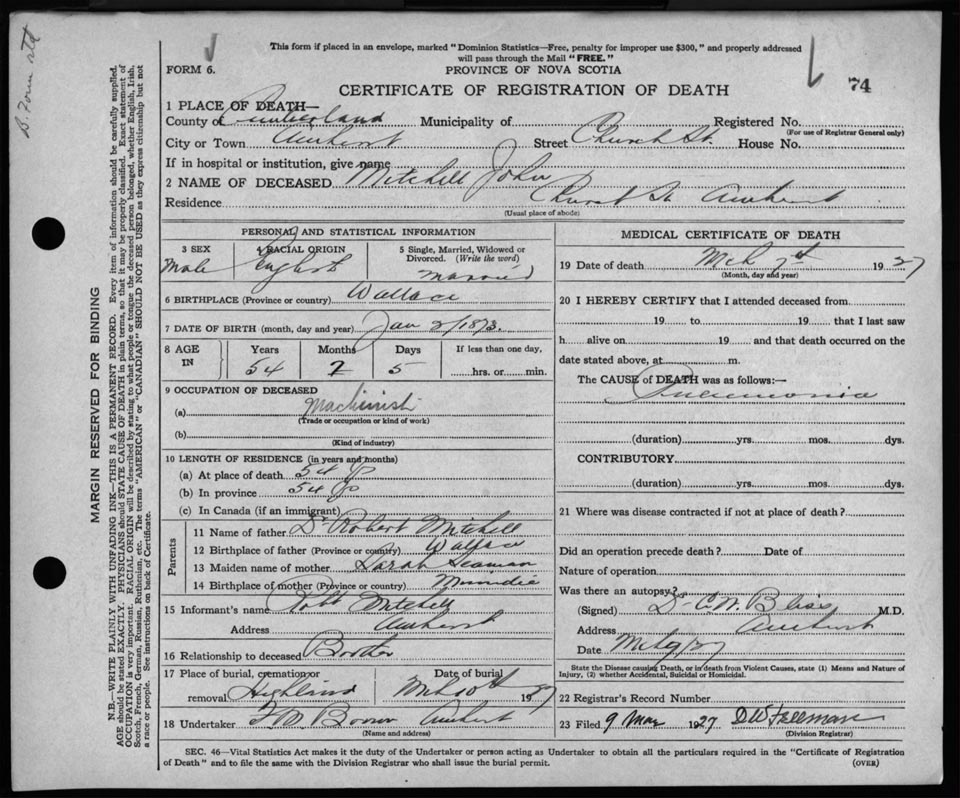 This form if placed in an envelope, marked "Dominion Statistics—Free, penalty for improper use $300," and properly addressed
will pass through the Mail "FREE."
FORM 6.
PROVINCE OF NOVA SCOTIA
74
CERTIFICATE OF REGISTRATION OF DEATH
1 PLACE OF DEATH—
County of Cumberland Municipality of Registered No.
(For use of Registrar General only)
City or Town Amherst Street Church St. House No.
If in hospital or institution, give name
2 NAME OF DECEASED Mitchell John
Residence Church St Amherst
(Usual place of abode)
PERSONAL AND STATISTICAL INFORMATION
3 SEX 4 RACIAL ORIGIN 5 Single, Married, Widowed or
Divorced. (Write the word)
Male English Married
6 BIRTHPLACE (Province or country) Wallace
7 DATE OF BIRTH (month, day and year) Jan 2/1873.
8 AGE IN Years Months Days If less than one day,
54 2 5 hrs. or min.
9 OCCUPATION OF DECEASED
(a) Machinist
(Trade or occupation or kind of work)
(b)
(Kind of industry)
10 LENGTH OF RESIDENCE (in years and months)
(a) At place of death 54
(b) In province 54
(c) In Canada (if an immigrant)
Parents
11 Name of father Dr Robert Mitchell
12 Birthplace of father (Province or country) Wallace
13 Maiden name of mother Sarah Seaman
14 Birthplace of mother (Province or country) Minudie
15 Informant's name Robt Mitchell
Address Amherst
16 Relationship to deceased Brother
17 Place of burial, cremation or Date of burial
removal Highland Mch 10th 1927
18 Undertaker Amherst
(Name and address)
MEDICAL CERTIFICATE OF DEATH
19 Date of death Mch 7th 1927
(Month, day and year)
20 I HEREBY CERTIFY that I attended deceased from
19 to 19 that I last saw
h alive on 19 and that death occurred on the
date stated above, at m.
The CAUSE of DEATH was as follows:—
Pneumonia
(duration) yrs. mos. dys.
CONTRIBUTORY
(duration) yrs. mos. dys.
21 Where was disease contracted if not at place of death?
Did an operation precede death? Date of
Nature of operation
Was there an autopsy?
(Signed) Dr C.W. Bliss M.D.
Address Amherst
Date Mch 9/27
State the Disease causing Death, or in death from Violent Causes, state (1) Means and Nature of
Injury, (2) whether Accidental, Suicidal or Homicidal.
22 Registrar's Record Number
23 Filed 9 Mar 1927
(Division Registrar)
SEC. 46—Vital Statistics Act makes it the duty of the Undertaker or person acting as Undertaker to obtain all the particulars required in the "Certificate of Registration
of Death" and to file the same with the Division Registrar who shall issue the burial permit.
(OVER)
MARGIN RESERVED FOR BINDING
N.B.—WRITE PLAINLY WITH UNFADING INK—THIS IS A PERMANENT RECORD. Every item of information should be carefully supplied.
AGE should be stated EXACTLY. PHYSICIANS should STATE CAUSE OF DEATH in plain terms, so that it may be properly classified. Exact statement of
OCCUPATION is very important. RACIAL ORIGIN will be described by stating to what people or tongue the deceased person belonged, whether English, Irish,
Scotch, French, German, Russian, Ruthenian, etc. The terms "AMERICAN" or "CANADIAN" SHOULD NOT BE USED as they express citizenship but not
a race or people. See instructions on back of Certificate.